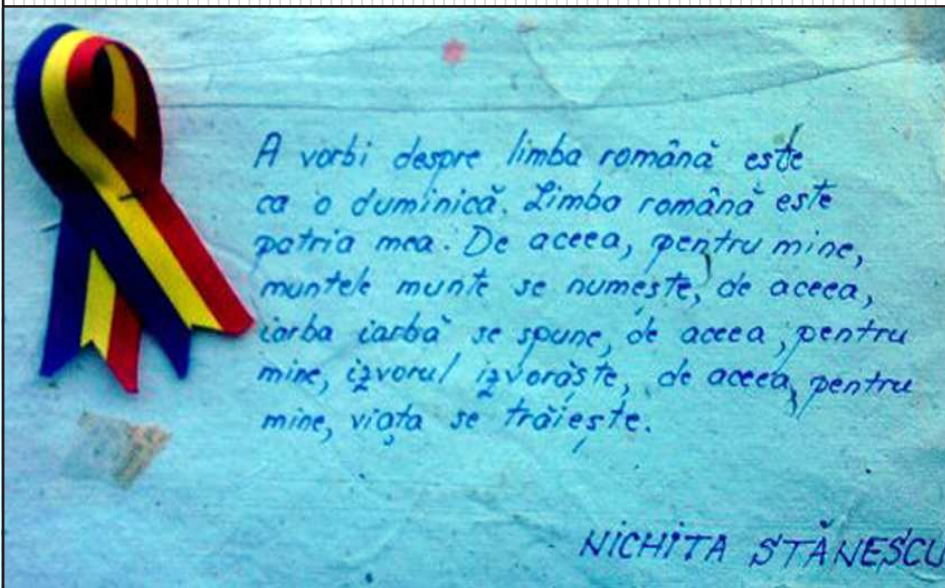 A vorbi despre limba română este
ca o duminică. Limba română este
patria mea. De aceea, pentru mine,
muntele munte se numește, de aceea,
iarba iarbă se spune, de aceea, pentru
mine, izvorul izvorăște, de aceea, pentru
mine, viața se trăiește.
NICHITA STĂNESCU